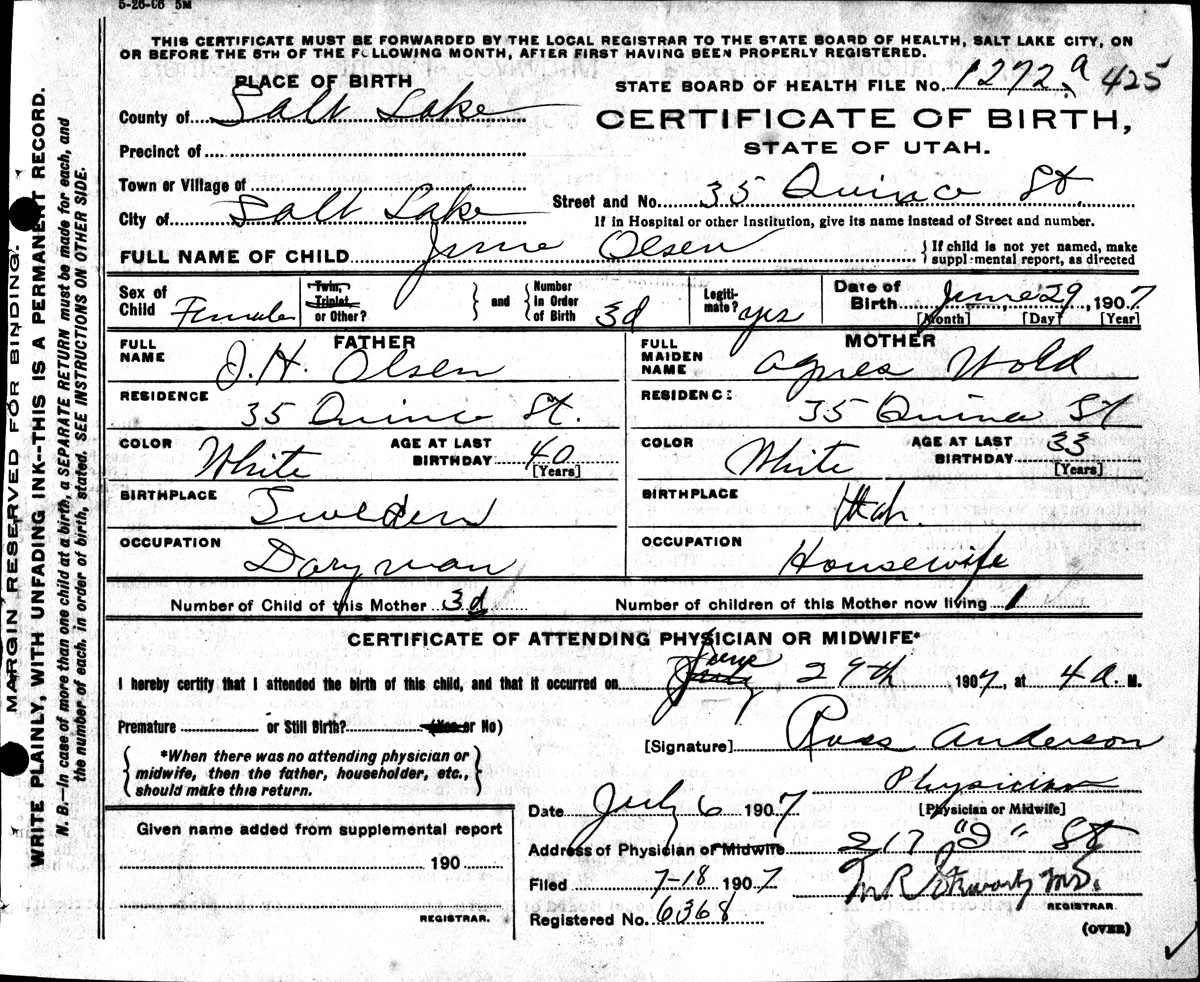 5-26-06 5M
THIS CERTIFICATE MUST BE FORWARDED BY THE LOCAL REGISTRAR TO THE STATE BOARD OF HEALTH, SALT LAKE CITY, ON
OR BEFORE THE 5TH OF THE FOLLOWING MONTH, AFTER FIRST HAVING BEEN PROPERLY REGISTERED.
MARGIN RESERVED FOR BINDING.
WRITE PLAINLY, WITH UNFADING INK--THIS IS A PERMANENT RECORD.
N. B.—In case of more than one child at a birth, a SEPARATE RETURN must be made for each, and
the number of each, in order of birth, stated. SEE INSTRUCTIONS ON OTHER SIDE.
PLACE OF BIRTH
STATE BOARD OF HEALTH FILE No. 1272 a 425
County of Salt Lake
CERTIFICATE OF BIRTH,
STATE OF UTAH.
Precinct of
Town or Village of
Street and No. 35 Quince St.
City of Salt Lake
If in Hospital or other Institution, give its name instead of Street and number.
FULL NAME OF CHILD June Olsen
If child is not yet named, make
supplemental report, as directed
Sex of Child Female
Twin, Triplet, or Other?
and
Number in Order of Birth 3d
Legitimate? yes
Date of Birth June 29, 1907
[Month] [Day] [Year]
FATHER
FULL NAME J. H. Olsen
RESIDENCE 35 Quince St.
COLOR White
AGE AT LAST BIRTHDAY 40
[Years]
BIRTHPLACE Sweden
OCCUPATION Daryman
MOTHER
FULL MAIDEN NAME Agnes Wold
RESIDENCE 35 Quince St
COLOR White
AGE AT LAST BIRTHDAY 33
[Years]
BIRTHPLACE Utah.
OCCUPATION Housewife
Number of Child of this Mother 3d
Number of children of this Mother now living 1
CERTIFICATE OF ATTENDING PHYSICIAN OR MIDWIFE*
I hereby certify that I attended the birth of this child, and that it occurred on June 29th 1907, at 4 a. M.
Premature or Still Birth? (Yes or No)
[Signature] Ross Anderson
*When there was no attending physician or
midwife, then the father, householder, etc.,
should make this return.
Physician
[Physician or Midwife]
Date July 6 1907
Given name added from supplemental report
190
REGISTRAR.
Address of Physician or Midwife 217 "J" St
Filed 7-18 1907
REGISTRAR.
Registered No. 6368
(OVER)